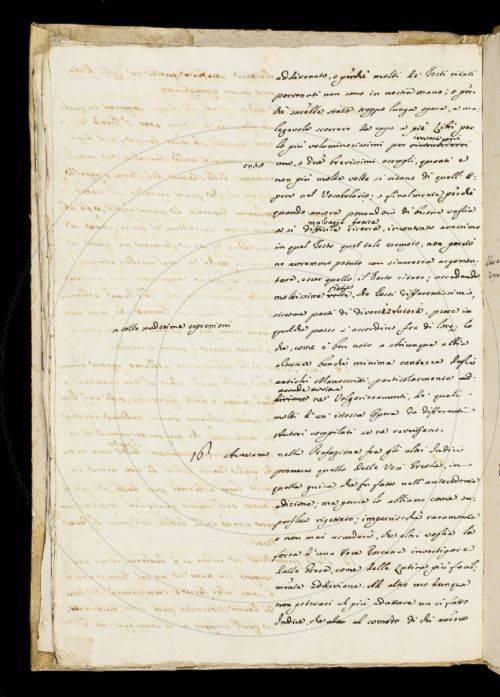 addivenuto, o perchè molti de' Testi citati
pervenuti non sono in nostra mano; o per-
chè sarebbe stata troppo lunga opera, e ma-
lagevole scorrere da capo a piè Libri per
lo più voluminosissimi per rinvenirvi
uno, o due brevissimi esempli, quanti e
non più molte volte si citano di quell' O-
pera nel Vocabolario; o finalmente perchè
quando ancora ponendoci di buona voglia
a sì malvagia fatica difficile ricerca, incontrato avessimo
in qual Testo quel tale esemplo, non perciò
ne avremmo potuto con sicurezza argomen-
tare, esser quello il Testo citato; accadendo
moltissime fiate, che Testi differentissimi,
siccome parti di diversi Autori, pure in
qualche passo s' accordino fra di loro; lo
che, come è ben noto a chiunque abbia
alcuna benchè minima contezza degli
antichi Manoscritti, particolarmente ad-
diviene ne' Volgarizzamenti, de' quali
molti d' un' istessa Opera da differenti
Autori compilati se ne ravvisano.
n colla medesima espressioni
16. Avevamo nella Prefazione fra gli altri Indici
promesso quello delle Voci Greche, in
quella guisa che fu fatto nell' antecedente
edizione; ma poscia lo abbiamo come su-
perfluo rigettato; imperciocchè raramente
o non mai accaderà, che altri voglia la
forza d' una Voce Toscana investigare
dalla Greca, come dalla Latina più facil-
mente addiviene. Ad altro uso dunque
non potevasi al più adattare un sì fatto
Indice, che al comodo di chi avesse